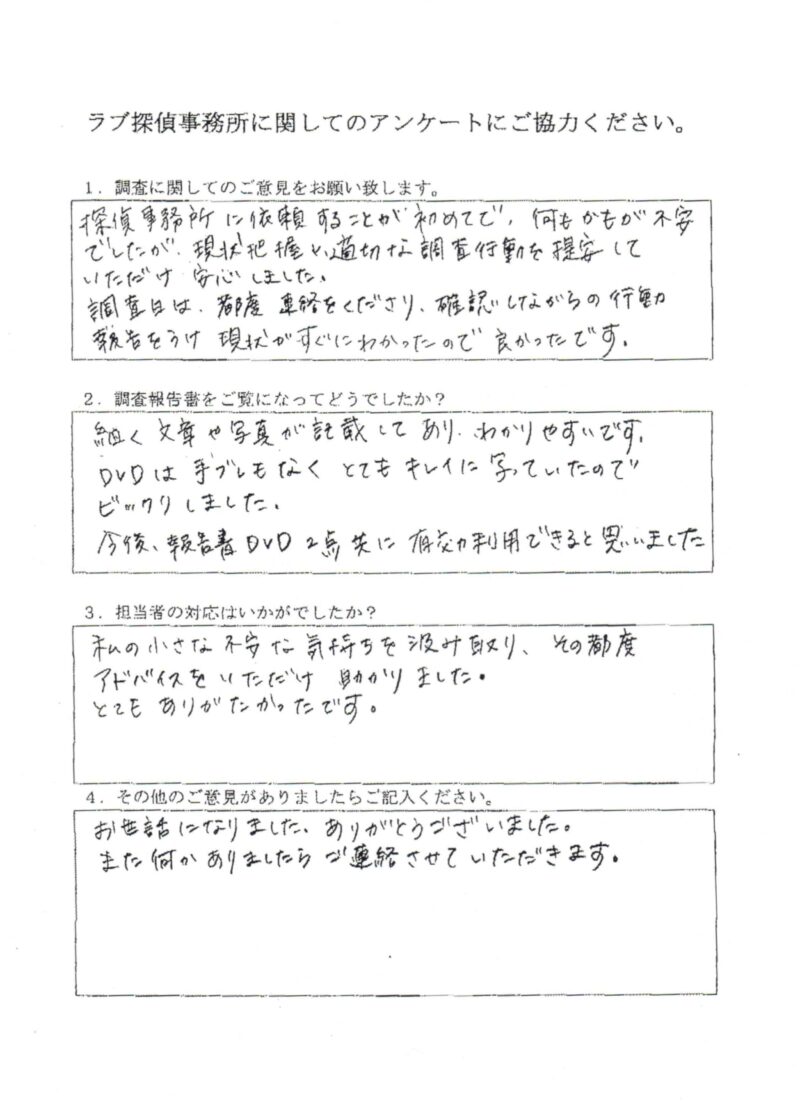 ラブ探偵事務所に関してのアンケートにご協力ください。
1．調査に関してのご意見をお願い致します。
探偵事務所に依頼することが初めてで、何もかもが不安
でしたが、現状把握と、適切な調査行動を提案して
いただけ 安心しました。
調査日は、都度 連絡をくださり、確認しながらの行動
報告をうけ 現状がすぐにわかったので 良かったです。
2．調査報告書をご覧になってどうでしたか？
細く 文章や写真が記載してあり、わかりやすいです。
DVDは 手ブレもなく とてもキレイに 写っていたので
ビックリしました。
今後、報告書 DVD 2点共に 有効利用できると思いました
3．担当者の対応はいかがでしたか？
私の小さな不安な気持ちを汲み取り、その都度
アドバイスをいただけ 助かりました。
とても ありがたかったです。
4．その他のご意見がありましたらご記入ください。
お世話になりました、ありがとうございました。
また何かありましたら ご連絡させていただきます。